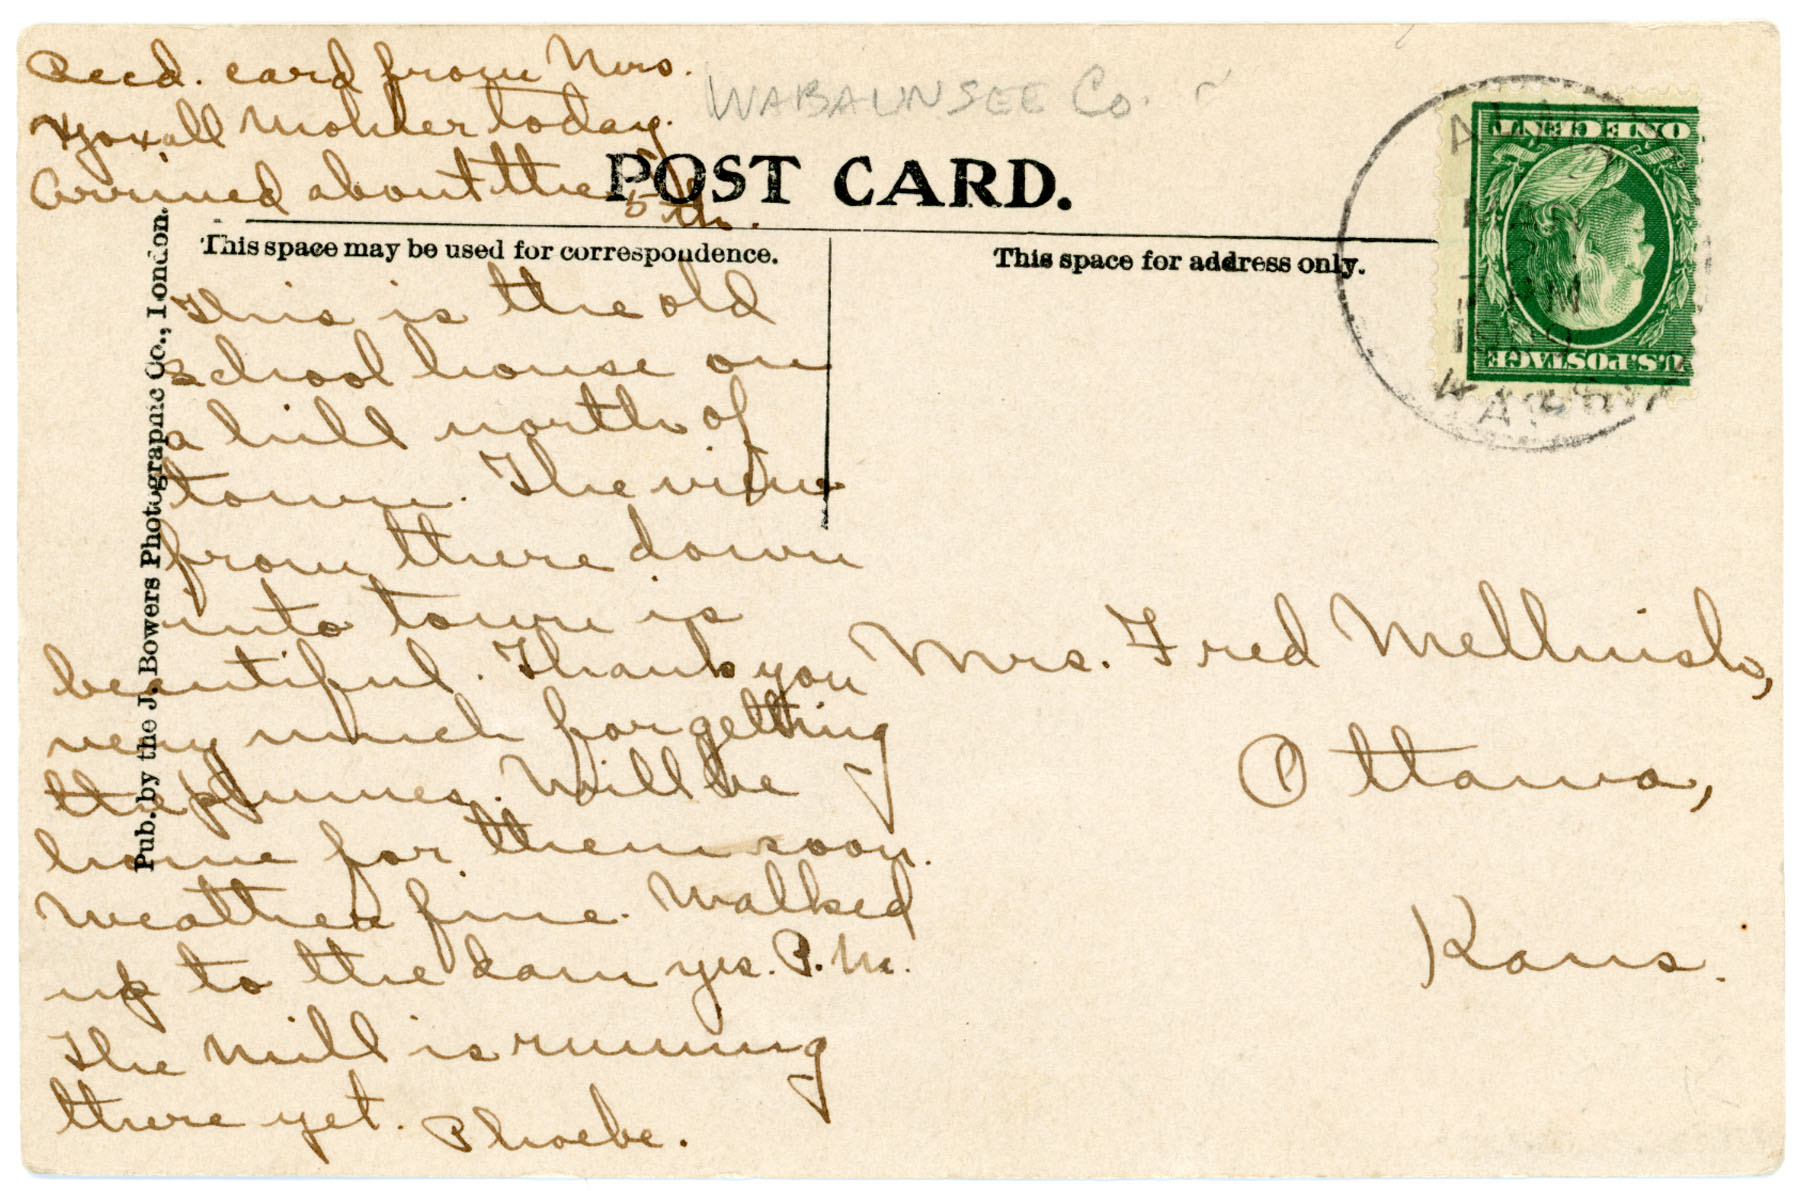 Recd. card from Mrs.
Yoxall Mohler today.
Arrived about the 5th.
WABAUNSEE Co.
POST CARD.
This space may be used for correspondence.
This space for address only.
Pub. by the J. Bowers Photographic Co., London.
This is the old
school house on
a hill north of
town. The view
from there down
into town is
beautiful. Thank you
very much for getting
the plumes. Will be
home for them soon.
Weather fine. Walked
up to the dam yes. P.M.
The mill is running
there yet. Phoebe.
Mrs. Fred Mellinish,
Ottawa,
Kans.
ONE CENT
U.S. POSTAGE
ALMA
JAN
M
KANS